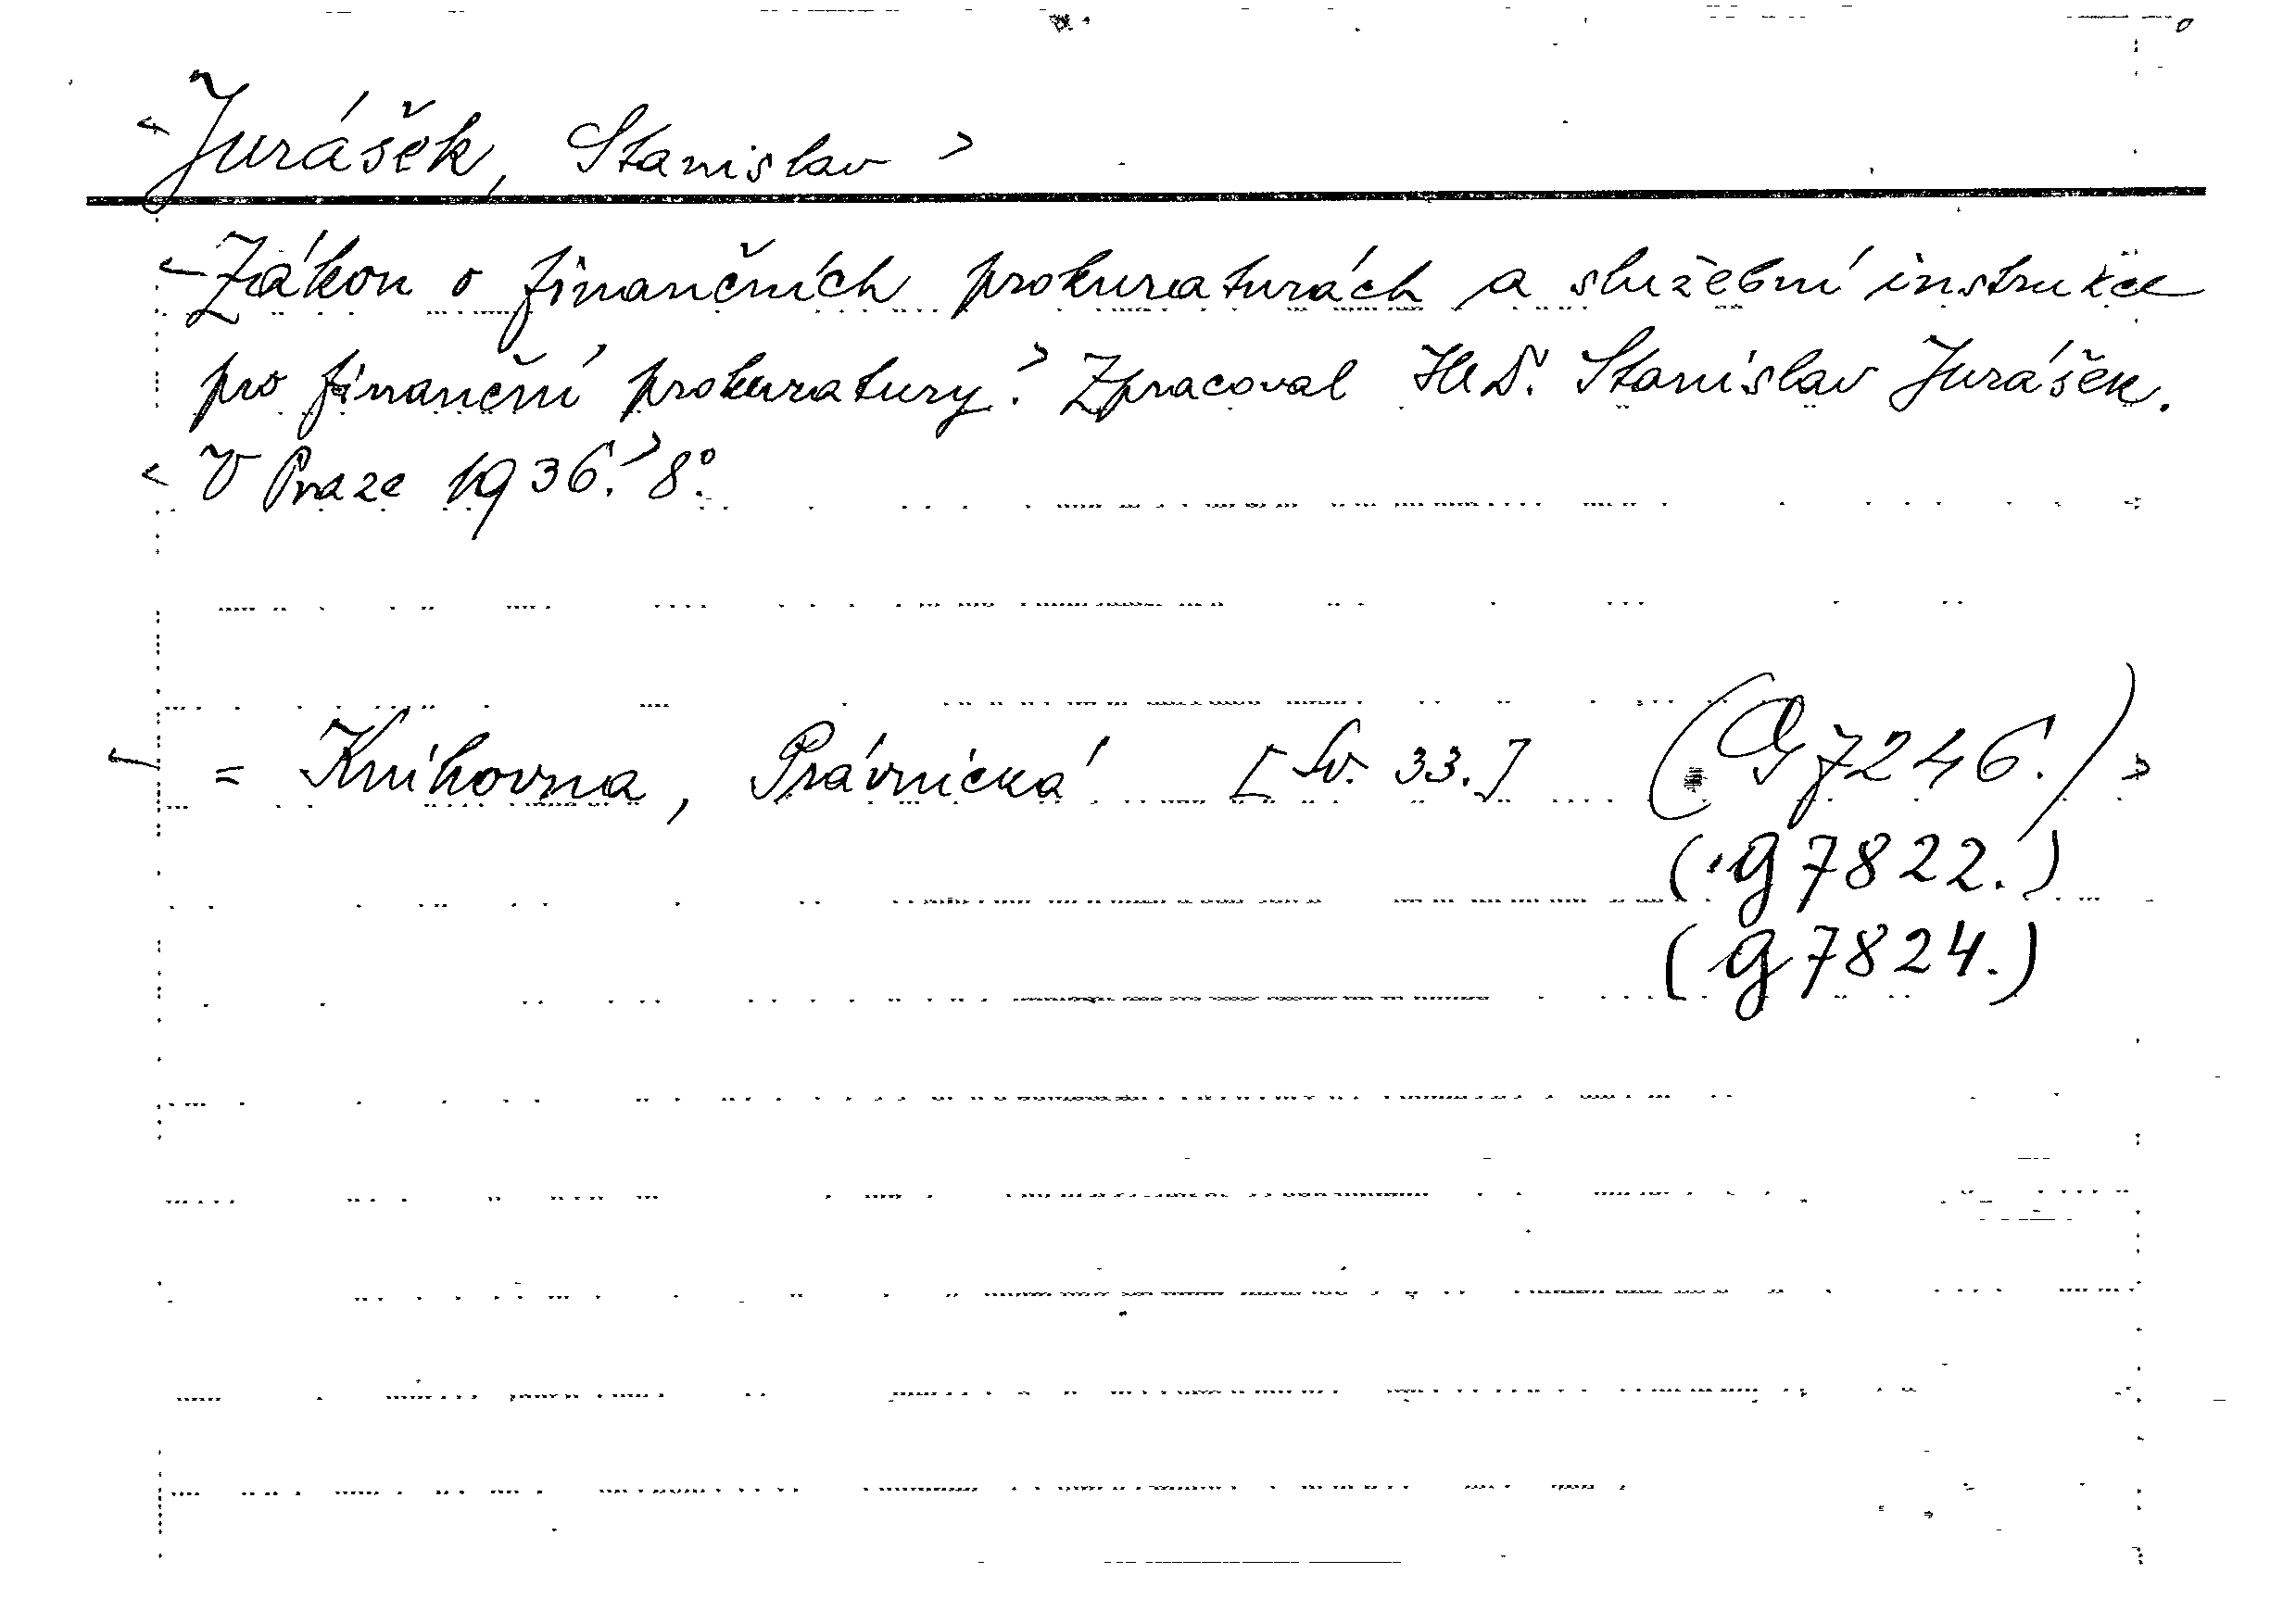 <Jurášek, Stanislav>
<Zákon o finančních prokuraturách a služební instrukce
pro finanční prokuratury.> Zpracoval JUD. Stanislav Jurášek.
<V Praze 1936.> 8°.
<= Knihovna, Právnická [Sv. 33.] (G 7246.)>
(g 7822.)
(g 7824.)